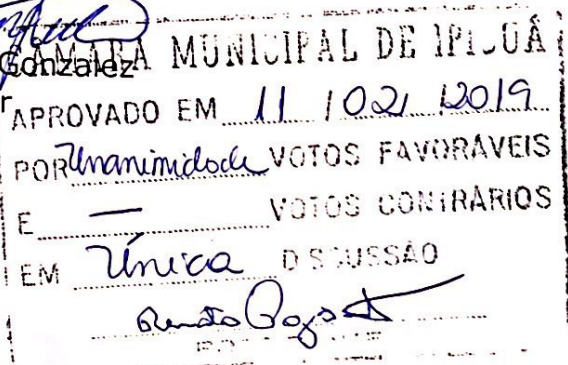 Gonzalez
CÂMARA MUNICIPAL DE IPIGUÁ
r
APROVADO EM 11 / 02 / 2019
POR Unanimidade VOTOS FAVORÁVEIS
E — VOTOS CONTRÁRIOS
EM Única DISCUSSÃO
Renato